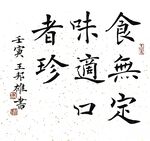 食無定
味適口
者珍
壬寅 王邦雄書